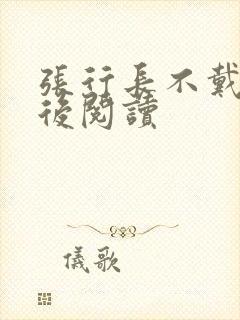 張行長不戴
後閱讀
儀歌